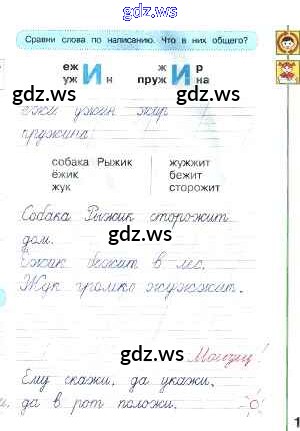 gdz.ws
Сравни слова по написанию. Что в них общего?
еж уж И н
ж пруж И р на
gdz.ws gdz.ws
ежи ужин жир
пружина
gdz.ws
собака Рыжик жужжит
ёжик бежит
жук сторожит
gdz.ws gdz.ws
Собака Рыжик сторожит
дом.
Ёжик бежит в лес.
Жук громко жужжит.
gdz.ws
Молодец!
gdz.ws gdz.ws
Ему скажи, да укажи,
да в рот положи.
gdz.ws
1